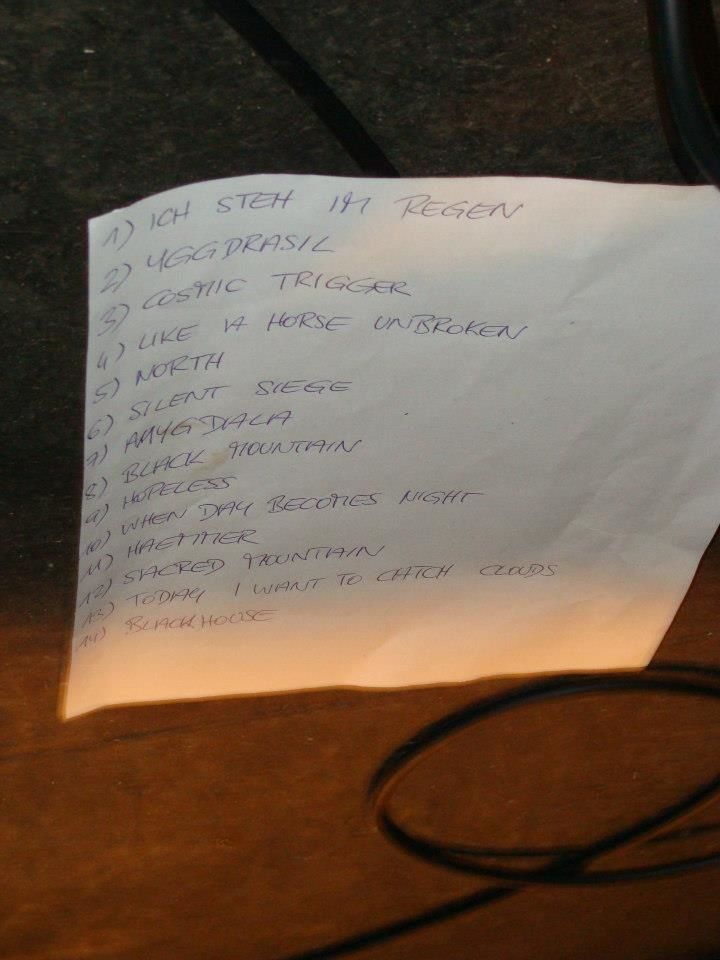 1) ICH STEH IM REGEN
2) YGGDRASIL
3) COSMIC TRIGGER
4) LIKE A HORSE UNBROKEN
5) NORTH
6) SILENT SIEGE
7) AMYGDALA
8) BLACK MOUNTAIN
9) HOPELESS
10) WHEN DAY BECOMES NIGHT
11) HAEMMER
12) SACRED MOUNTAIN
13) TODAY I WANT TO CATCH CLOUDS
14) BLACKHOUSE